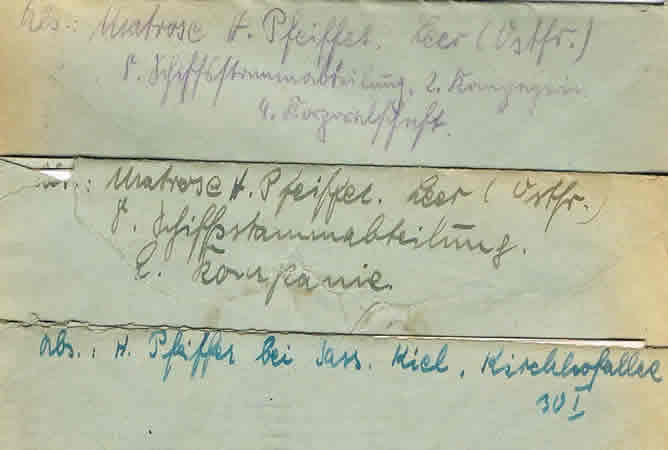 Abs.: Matrose H. Pfeiffer. Leer (Ostfr.)
8. Schiffsstammabteilung. 2. Kompagnie.
4. Korporalschaft.
Abs.: Matrose H. Pfeiffer. Leer (Ostfr.)
8. Schiffsstammabteilung.
2. Kompanie.
Abs.: H. Pfeiffer bei Sass. Kiel, Kirchhofallee
30 I